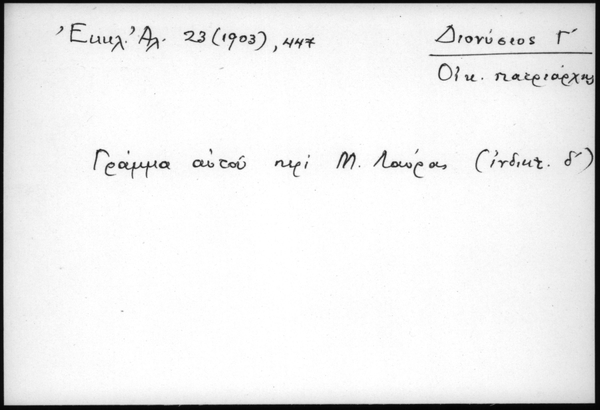 Ἐκκλ. Ἀλ. 23 (1903), 447
Διονύσιος Γ΄
Οἰκ. πατριάρχης
Γράμμα αὐτοῦ περὶ Μ. Λαύρας (ἰνδικτ. δ΄)